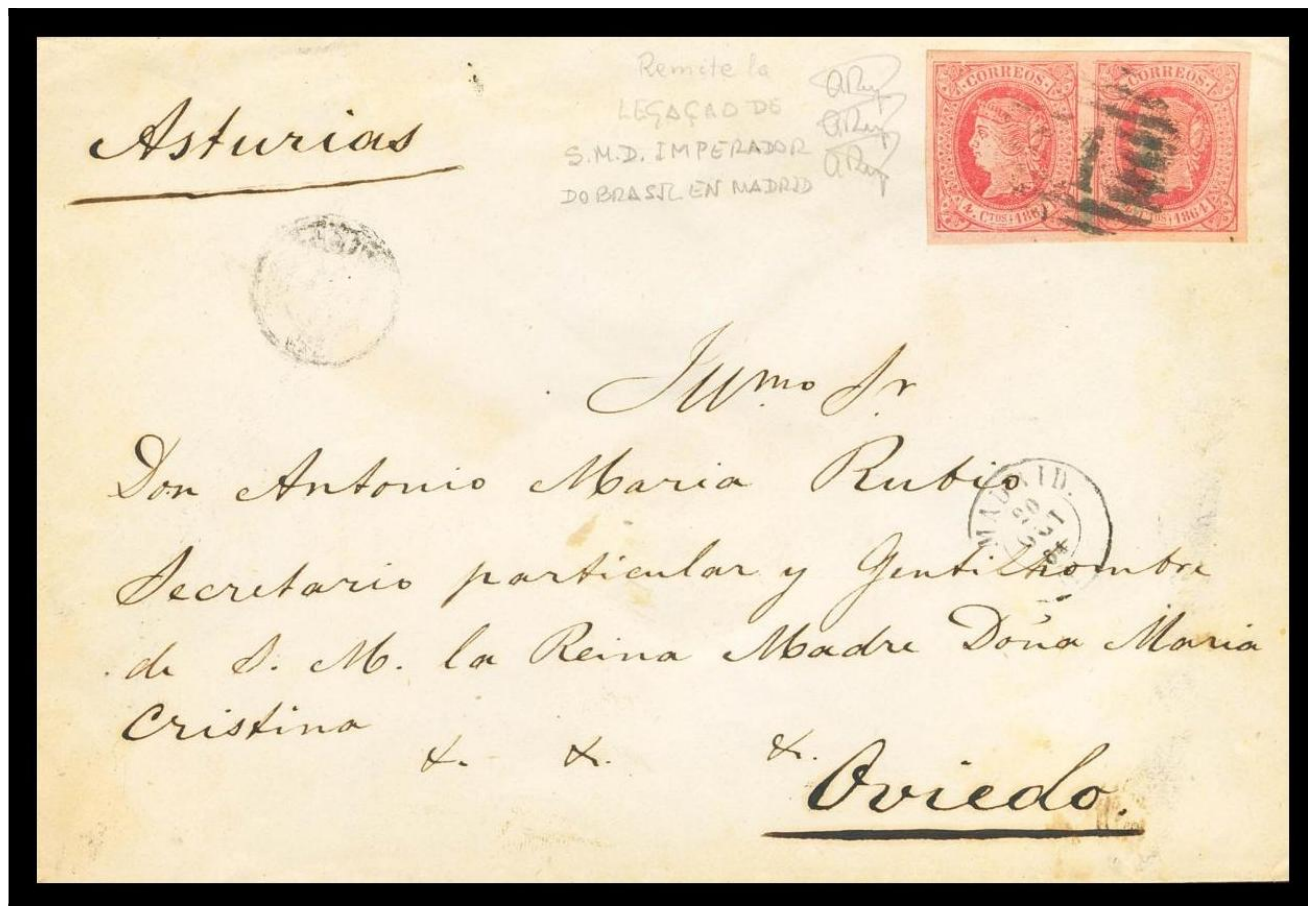 Asturias
Remite la
LEGAÇAO DE
S.M.D. IMPERADOR
DO BRASIL EN MADRID
CORREOS
4 CTOS 186
CORREOS
1864
Illmo Sr
Don Antonio Maria Rubio
MADRID.
20
OCT
64
Secretario particular y Gentilhombre
de S. M. la Reina Madre Doña Maria
Cristina
&. &. &.
Oviedo.